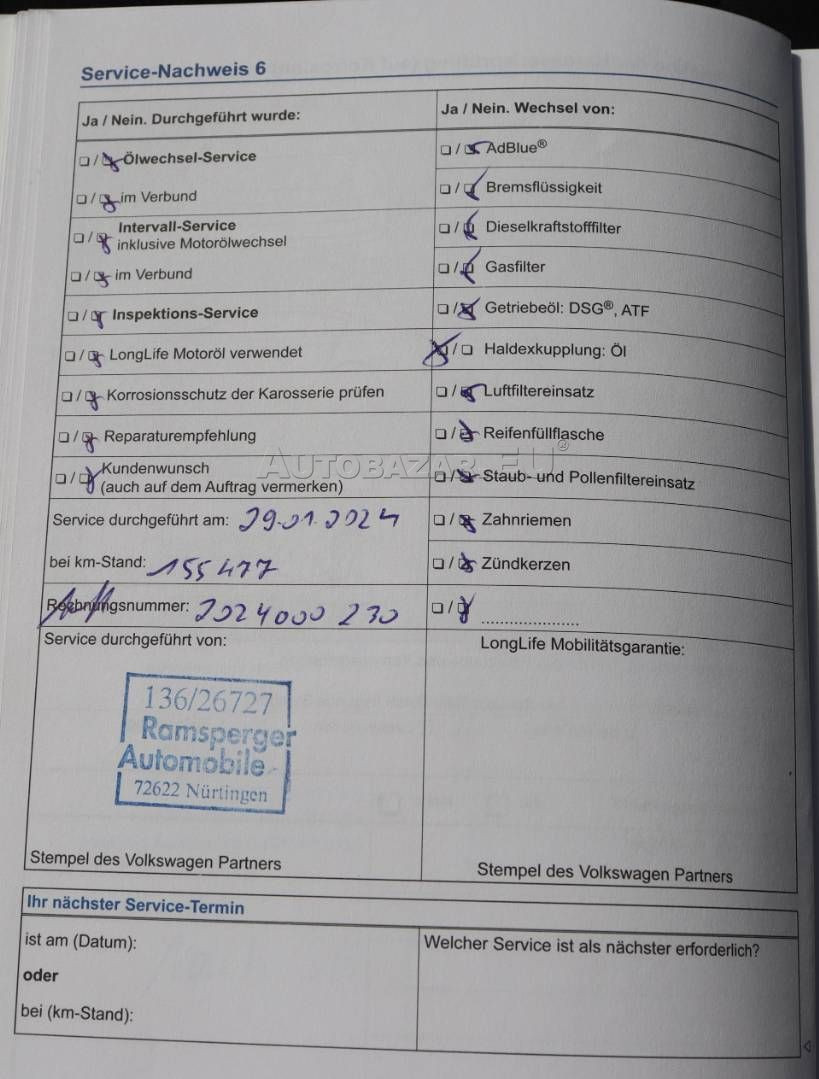 Service-Nachweis 6
Ja / Nein. Durchgeführt wurde:
❏ / ❏ Ölwechsel-Service
❏ / ❏ im Verbund
❏ / ❏ Intervall-Service
inklusive Motorölwechsel
❏ / ❏ im Verbund
❏ / ❏ Inspektions-Service
❏ / ❏ LongLife Motoröl verwendet
❏ / ❏ Korrosionsschutz der Karosserie prüfen
❏ / ❏ Reparaturempfehlung
❏ / ❏ Kundenwunsch
(auch auf dem Auftrag vermerken)
Service durchgeführt am: 29.01.2024
bei km-Stand: 155477
Rechnungsnummer: 2024000 230
Service durchgeführt von:
136/26727
Ramsperger
Automobile
72622 Nürtingen
Stempel des Volkswagen Partners
Ja / Nein. Wechsel von:
❏ / ❏ AdBlue®
❏ / ❏ Bremsflüssigkeit
❏ / ❏ Dieselkraftstofffilter
❏ / ❏ Gasfilter
❏ / ❏ Getriebeöl: DSG®, ATF
❏ / ❏ Haldexkupplung: Öl
❏ / ❏ Luftfiltereinsatz
❏ / ❏ Reifenfüllflasche
❏ / ❏ Staub- und Pollenfiltereinsatz
❏ / ❏ Zahnriemen
❏ / ❏ Zündkerzen
❏ / ❏ ......................
LongLife Mobilitätsgarantie:
Stempel des Volkswagen Partners
AUTOBAZAR.EU®
Ihr nächster Service-Termin
ist am (Datum):
oder
bei (km-Stand):
Welcher Service ist als nächster erforderlich?